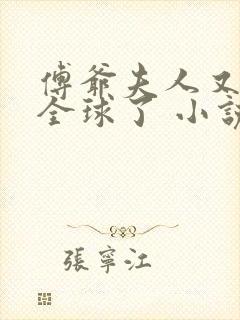 傅爺夫人又
全球了 小説
張寧江